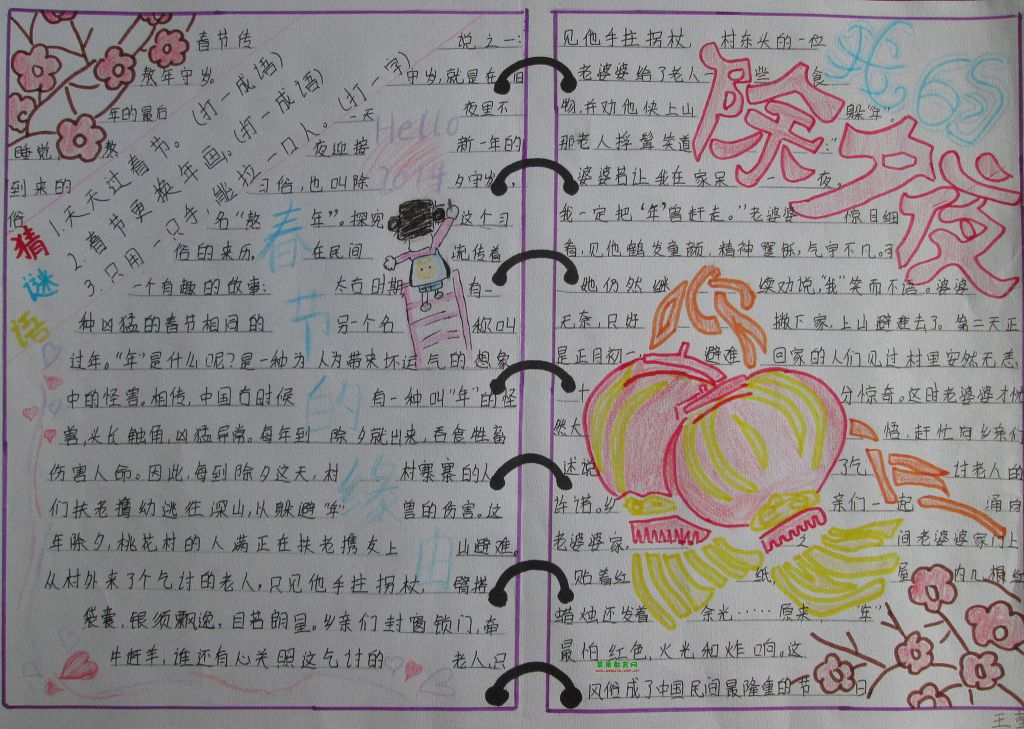 春节传 说之一:
熬年守岁 守岁,就是在旧
年的最后 一天 夜里不
睡觉, 熬 夜迎接 新一年的
到来的 习俗,也叫除 夕守岁,
俗 名“熬 年”。探究 这个习
俗的来历, 在民间 流传着
一个有趣的故事: 太古时期 有一
种凶猛的春节相同的 另一个名 称叫
过年。“年”是什么呢?是一种为人为带来坏运气的想象
中的怪害。相传,中国古时候 有一种叫“年”的怪
兽,头长触角,凶猛异常。每年到 除夕就出来,吞食牲畜
伤害人命。因此,每到除夕这天,村 村寨寨的人
们扶老携幼逃往深山,从躲避“年” 兽的伤害。这
年除夕,桃花村的人满正在扶老携 上 山避难。
从村外来了个乞讨的老人,只见他手拄拐杖, 臂搭
袋囊,银须飘逸,目若朗星。乡亲们封窗锁门,牵
牛赶羊,谁还有心关照这乞讨的 老人。只
猜谜语
1.天天过春节。(打一成语)
2.春节更换年画。(打一成语)
3.只用一只手,能拉一口人。(打一字)
Hello
2014
春节的缘由
见他手拄拐杖, 村东头的一位
老婆婆给了老人一 些 食
物,并劝他快上山 躲“年”。
那老人捋髯笑道
婆婆若让我在家呆 一 夜,
我一定把‘年’兽赶走。”老婆婆 惊目细
看,见他鹤发童颜,精神矍铄,气宇不凡。可
她仍然继 续劝说,“我”笑而不语。婆婆
无奈,只好 撇下家,上山避难去了。第二天正
是正月初一, 避难 回家的人们见过村里安然无恙
十 分惊奇。这时老婆婆才恍
然大 悟,赶忙向乡亲们
述说 了乞 讨老人的
许诺。乡 亲们一起 涌向
老婆婆家, 之 间老婆婆家门上
贴着红 纸, 屋 内几根红
蜡烛还发着 余光……原来 “年”
最怕红色,火光和炸响。这
风俗成了中国民间最隆重的节 日
除夕夜
苹果教育网